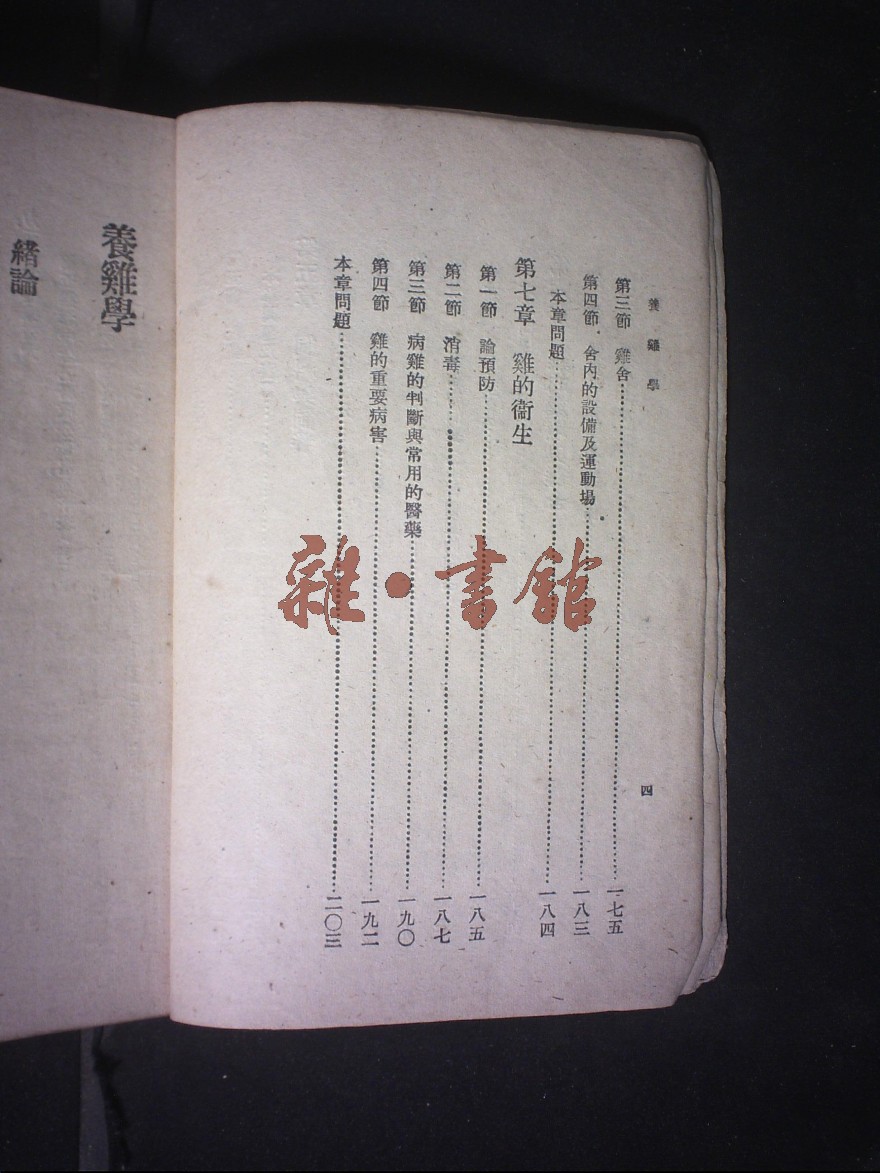 養雞學
四
第三節 雞舍……一七五
第四節 舍內的設備及運動場……一八三
本章問題……一八四
第七章 雞的衞生
第一節 論預防……一八五
第二節 消毒……一八七
第三節 病雞的判斷與常用的醫藥……一九〇
第四節 雞的重要病害……一九二
本章問題……二〇三
養雞學
緒論
雜·書館